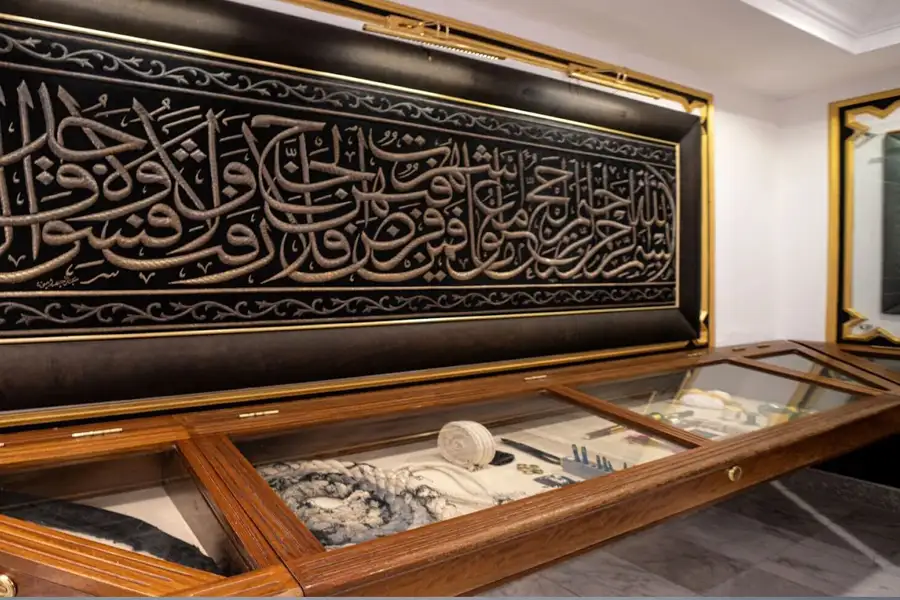 بسم الله الرحمن الرحيم الحج أشهر معلومات فمن فرض فيهن الحج فلا رفث ولا فسوق ولا